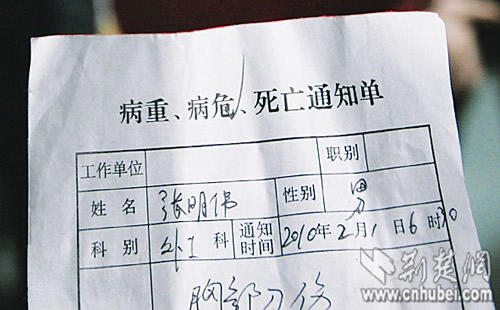 病重、病危、死亡通知单
工作单位 职别
姓名 张明伟 性别 男
科别 外I科 通知时间 2010年2月1日6时30
胸部刀伤
荆楚网
www.cnhubei.com